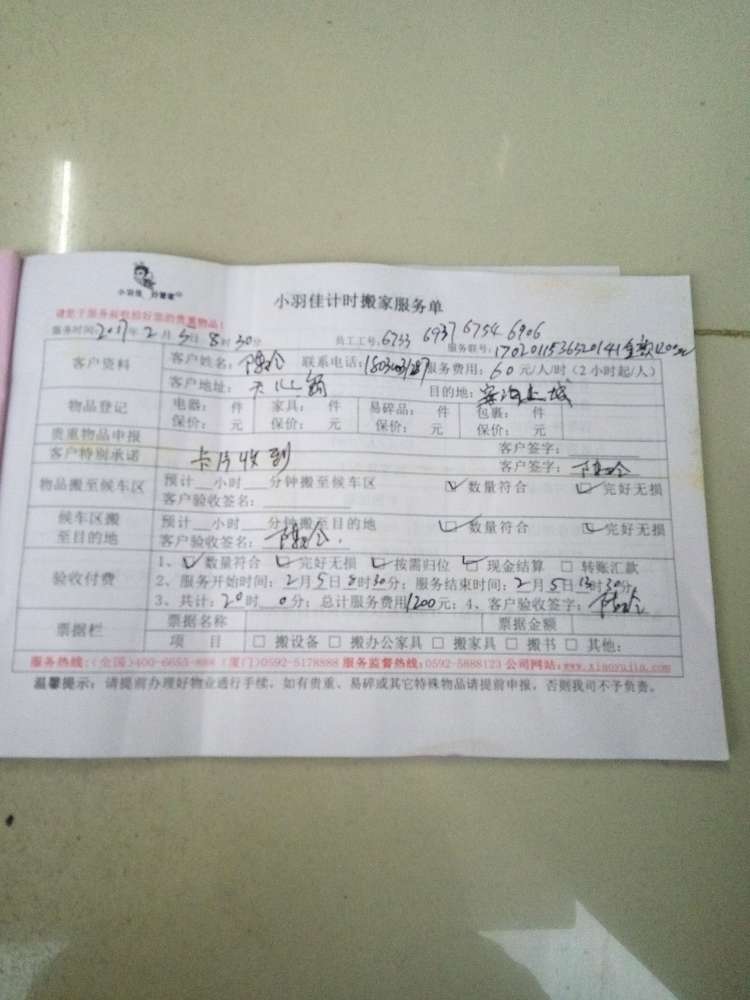 小羽佳 好管家
小羽佳计时搬家服务单
请您于服务前收拾好您的贵重物品!
服务时间:2017年2月5日8时30分 员工工号:6733 6937 6754 6906
服务联号:170201153652014
客户资料 客户姓名: 联系电话: 服务费用:60元/人/时(2小时起/人)
客户地址: 目的地:
物品登记 电器: 件 家具: 件 易碎品: 件 包裹: 件
保价: 元 保价: 元 保价: 元 保价: 元
贵重物品申报 客户签字:
客户特别承诺 卡片收到 客户签字:
物品搬至候车区 预计__小时__分钟搬至候车区 ☑数量符合 ☑完好无损
客户验收签名:
候车区搬至目的地 预计__小时__分钟搬至目的地 ☑数量符合 ☑完好无损
客户验收签名:
验收付费 1、☑数量符合 ☑完好无损 ☑按需归位 ☑现金结算 □转账汇款
2、服务开始时间:2月5日8时30分;服务结束时间:2月5日13时30分;
3、共计:20时0分;总计服务费用1200元;4、客户验收签字:
票据栏 票据名称 票据金额
项 目 □搬设备 □搬办公家具 □搬家具 □搬书 □其他:
服务热线:(全国)400-6655-888 (厦门)0592-5178888 服务监督热线:0592-5888123 公司网站:www.xiaoyujia.com
温馨提示:请提前办理好物业通行手续,如有贵重、易碎或其它特殊物品请提前申报,否则我司不予负责。